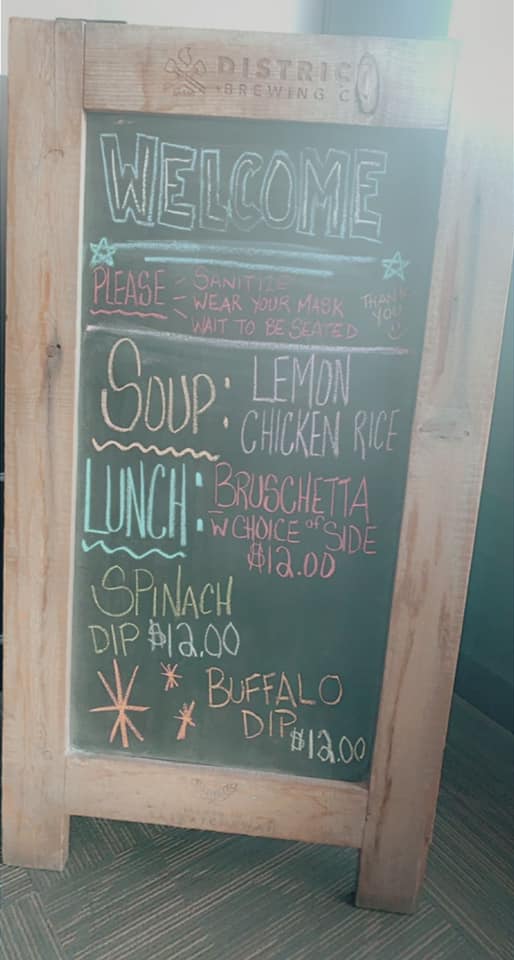 DISTRICT
BREWING C
WELCOME
PLEASE - SANITIZE
- WEAR YOUR MASK
- WAIT TO BE SEATED
THANK
YOU
SOUP: LEMON
CHICKEN RICE
LUNCH: BRUSCHETTA
W CHOICE of SIDE
$12.00
SPINACH
DIP $12.00
BUFFALO
DIP $12.00